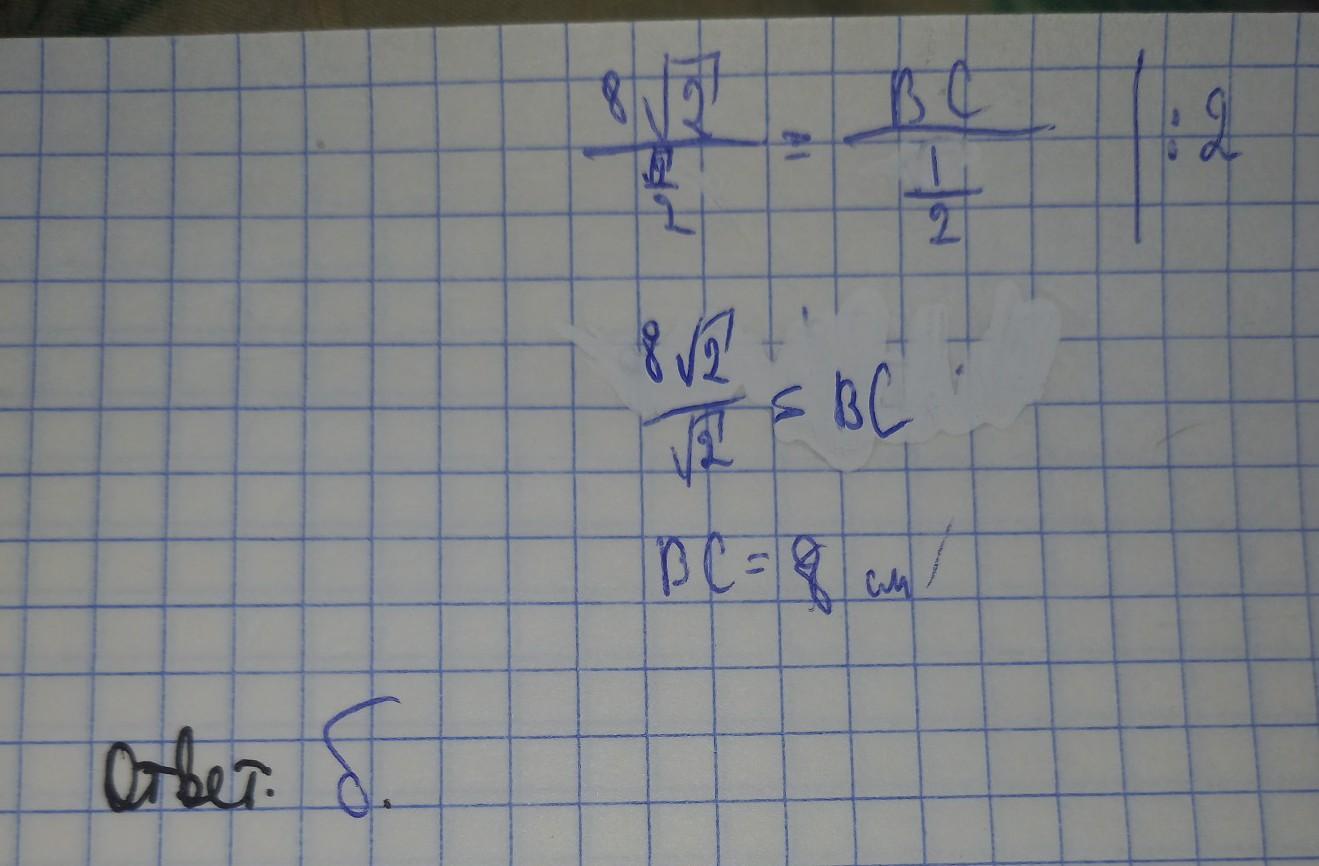 8√2 / (√2/2) = BC / (1/2) | : 2
8√2 / √2 = BC
BC = 8 см
Ответ: б.